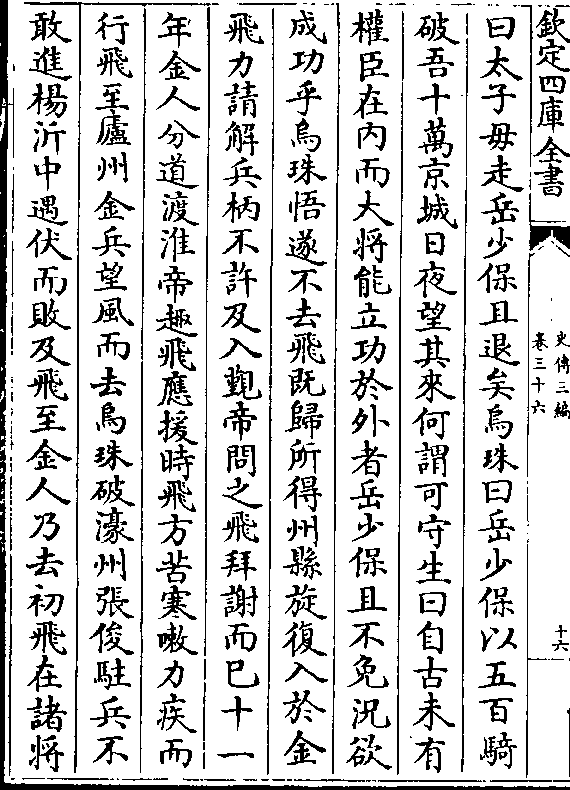 欽定四庫全書
史傳三編
卷三十六
十六
曰太子毋走岳少保且退矣烏珠曰岳少保以五百騎
破吾十萬京城日夜望其來何謂可守生曰自古未有
權臣在内而大將能立功於外者岳少保且不免況欲
成功乎烏珠悟遂不去飛既歸所得州縣旋復入於金
飛力請解兵柄不許及入覲帝問之飛拜謝而已十一
年金人分道渡淮帝趣飛應援時飛方苦寒嗽力疾而
行飛至廬州金兵望風而去烏珠破濠州張俊駐兵不
敢進楊沂中遇伏而敗及飛至金人乃去初飛在諸將